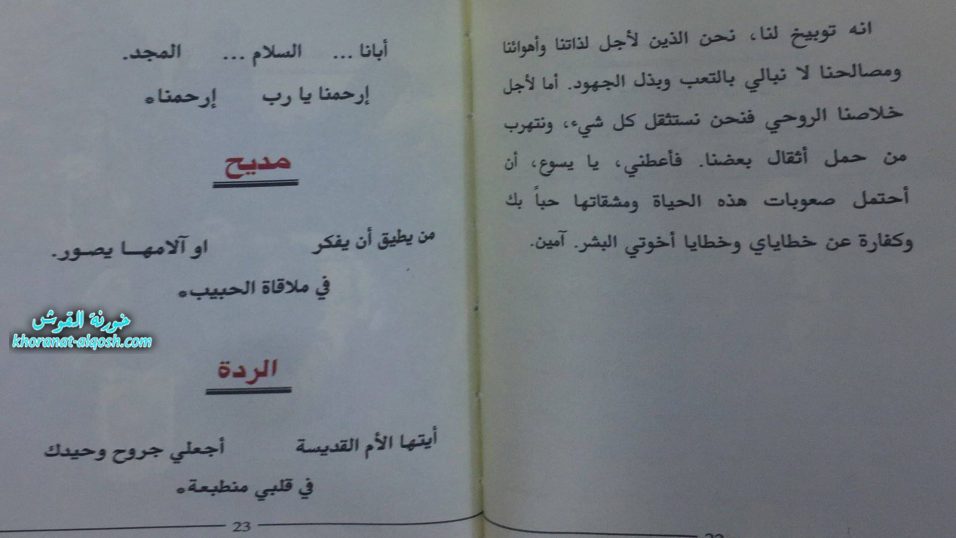 انه توبيخ لنا، نحن الذين لأجل لذاتنا وأهوائنا
ومصالحنا لا نبالي بالتعب وبذل الجهود. أما لأجل
خلاصنا الروحي فنحن نستثقل كل شيء، ونتهرب
من حمل أثقال بعضنا. فأعطني، يا يسوع، أن
أحتمل صعوبات هذه الحياة ومشقاتها حباً بك
وكفارة عن خطاياي وخطايا أخوتي البشر. آمين.
أبانا ... السلام ... المجد.
إرحمنا يا رب إرحمنا*
مديح
من يطيق أن يفكر او آلامهـا يصور.
في ملاقاة الحبيب*
الردة
أيتها الأم القديسة أجعلي جروح وحيدك
في قلبي منطبعة*
23
خورنة القوش
khoranat-alqosh.com